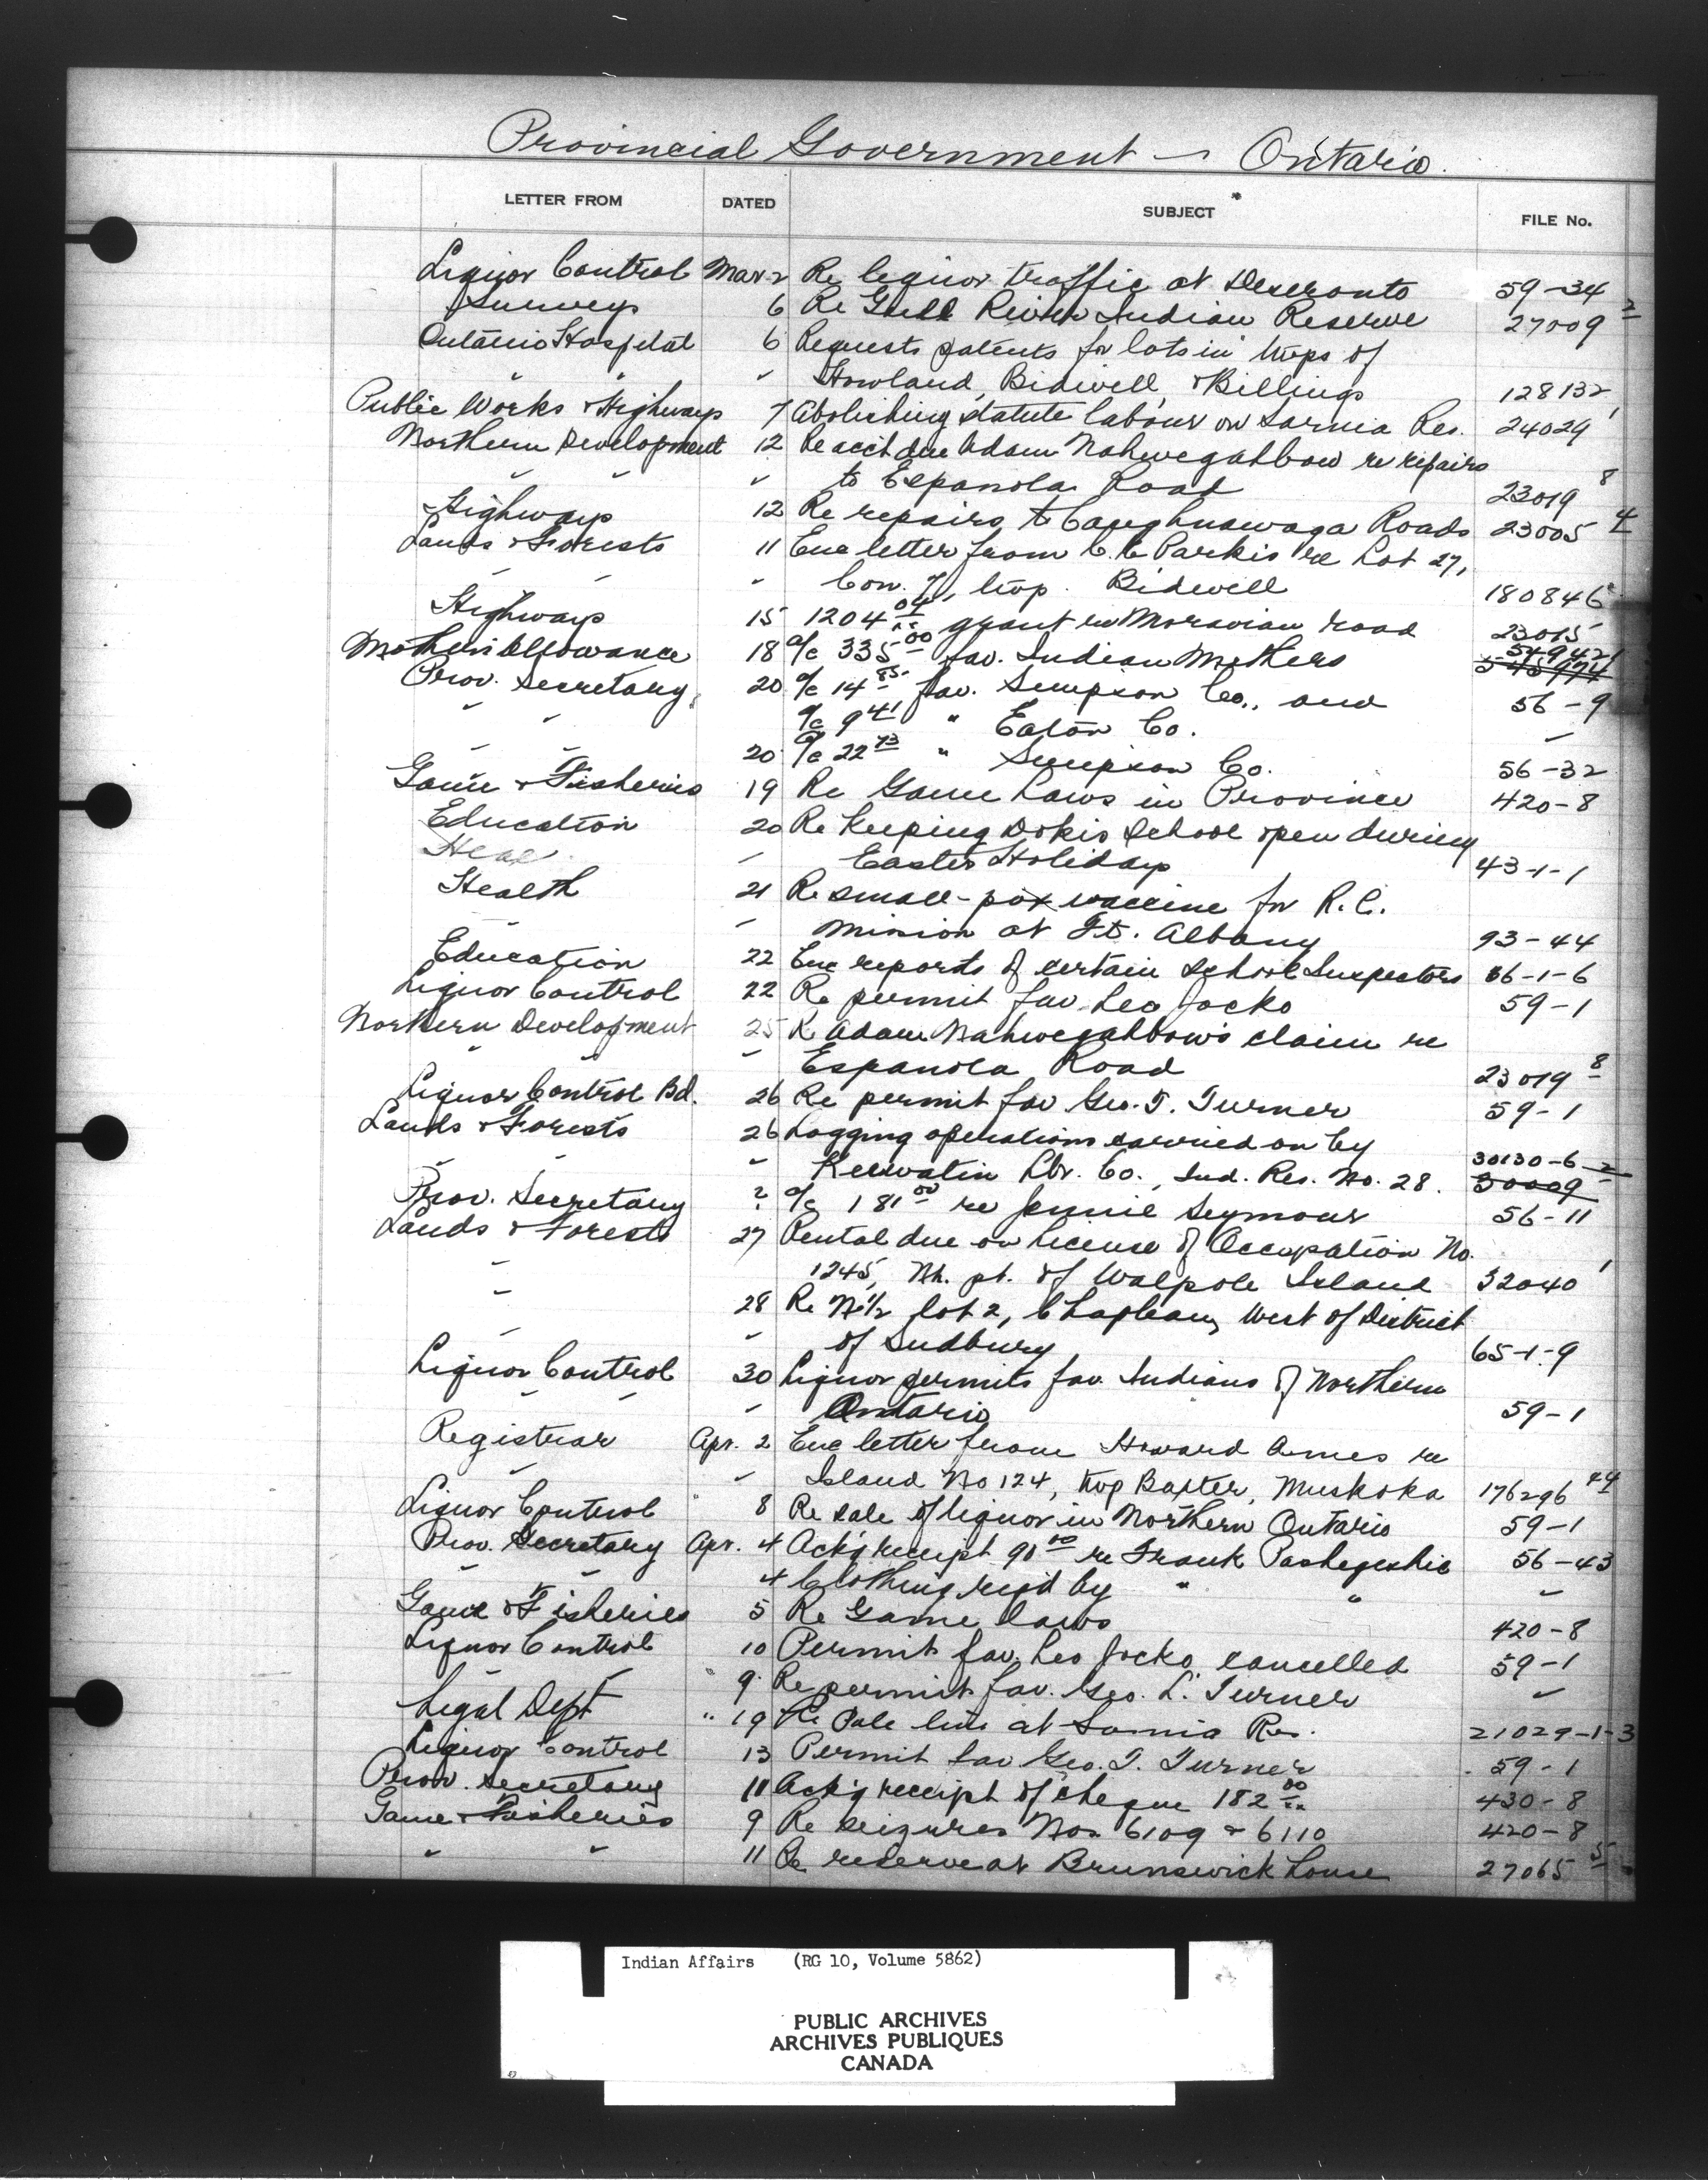 Provincial Government - Ontario.
LETTER FROM DATED SUBJECT FILE No.
Liquor Control Mar 2 Re liquor traffic at Deseronto 59-34
Surveys 6 Re Gull River Indian Reserve 27009 2
Ontario Hospital 6 Requests patents for lots in twps of
" " " Howland, Bidwell, & Billings 128132
Public Works & Highways 7 Abolishing statute labour on Sarnia Res. 24029 1
Northern Development 12 Re acct due Adam Nahwegahbow re repairs
" " " to Espanola Road 23019 8
Highways 12 Re repairs to Caughnawaga Roads 23005 4
Lands & Forests 11 Enc letter from C.E. Parkis re Lot 27,
" " " Con. 7, twp. Bidwell 180846
Highways 15 1204 04 grant re Moravian road 23015
Mothers Allowance 18 a/c 335 00 fav. Indian Mothers 549421 545974
Prov. Secretary 20 a/c 14 85 fav. Simpson Co., and 56-9
" " a/c 9 41 " Eaton Co. "
" " 20 a/c 22 73 " Simpson Co. 56-32
Game & Fisheries 19 Re Game Laws in Province 420-8
Education 20 Re keeping Dokis School open during
Heal " Easter Holidays 43-1-1
Health 21 Re small-pox vaccine for R.C.
" " mission at Ft. Albany 93-44
Education 22 Enc reports of certain School Inspectors 36-1-6
Liquor Control 22 Re permit fav Leo Jocko 59-1
Northern Development 25 Re Adam Nahwegahbow's claim re
" " " Espanola Road 23019 8
Liquor Control Bd. 26 Re permit fav Geo. T. Turner 59-1
Lands & Forests 26 Logging operations carried on by 30130-6-2
" " " Keewatin Lbr. Co., Ind. Res. No. 28. 30009
Prov. Secretary ? a/c 181 00 re Jennie Seymour 56-11
Lands & Forests 27 Rental due on License of Occupation No.
" 1245, Nh. pt. of Walpole Island 32040 1
" 28 Re N½ lot 2, Chapleau, West of District
" " of Sudbury 65-1-9
Liquor Control 30 Liquor permits fav. Indians of Northern
" " " Ontario 59-1
Registrar Apr. 2 Enc letter from Howard Ames re
" " Island No 124, twp Baxter, Muskoka 176296 44
Liquor Control " 8 Re sale of liquor in Northern Ontario 59-1
Prov. Secretary Apr. 4 Ack'g receipt 90 00 re Frank Pashegeshic 56-43
" " 4 Clothing req'd by " " "
Game & Fisheries 5 Re Game laws 420-8
Liquor Control 10 Permit fav. Leo Jocko cancelled 59-1
" " " 9 Re permit fav. Geo. L. Turner "
Legal Dept " 19 Re Pole line at Sarnia Res. 21029-1-3
Liquor Control 13 Permit fav Geo. T. Turner 59-1
Prov. Secretary 11 Ack'g receipt of cheque 182 00 430-8
Game & Fisheries 9 Re seizures Nos. 6109 & 6110 420-8
" " 11 Re reserve at Brunswick House 27065 5
Indian Affairs (RG 10, Volume 5862)
PUBLIC ARCHIVES
ARCHIVES PUBLIQUES
CANADA